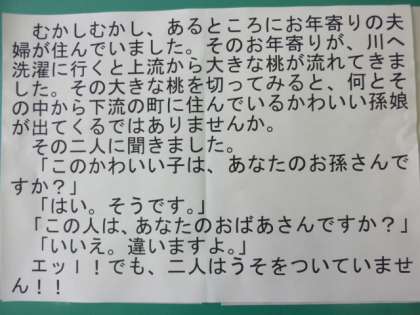 むかしむかし、あるところにお年寄りの夫
婦が住んでいました。そのお年寄りが、川へ
洗濯に行くと上流から大きな桃が流れてきま
した。その大きな桃を切ってみると、何とそ
の中から下流の町に住んでいるかわいい孫娘
が出てくるではありませんか。
その二人に聞きました。
「このかわいい子は、あなたのお孫さんで
すか？」
「はい。そうです。」
「この人は、あなたのおばあさんですか？」
「いいえ。違いますよ。」
エッー！でも、二人はうそをついていませ
ん！！